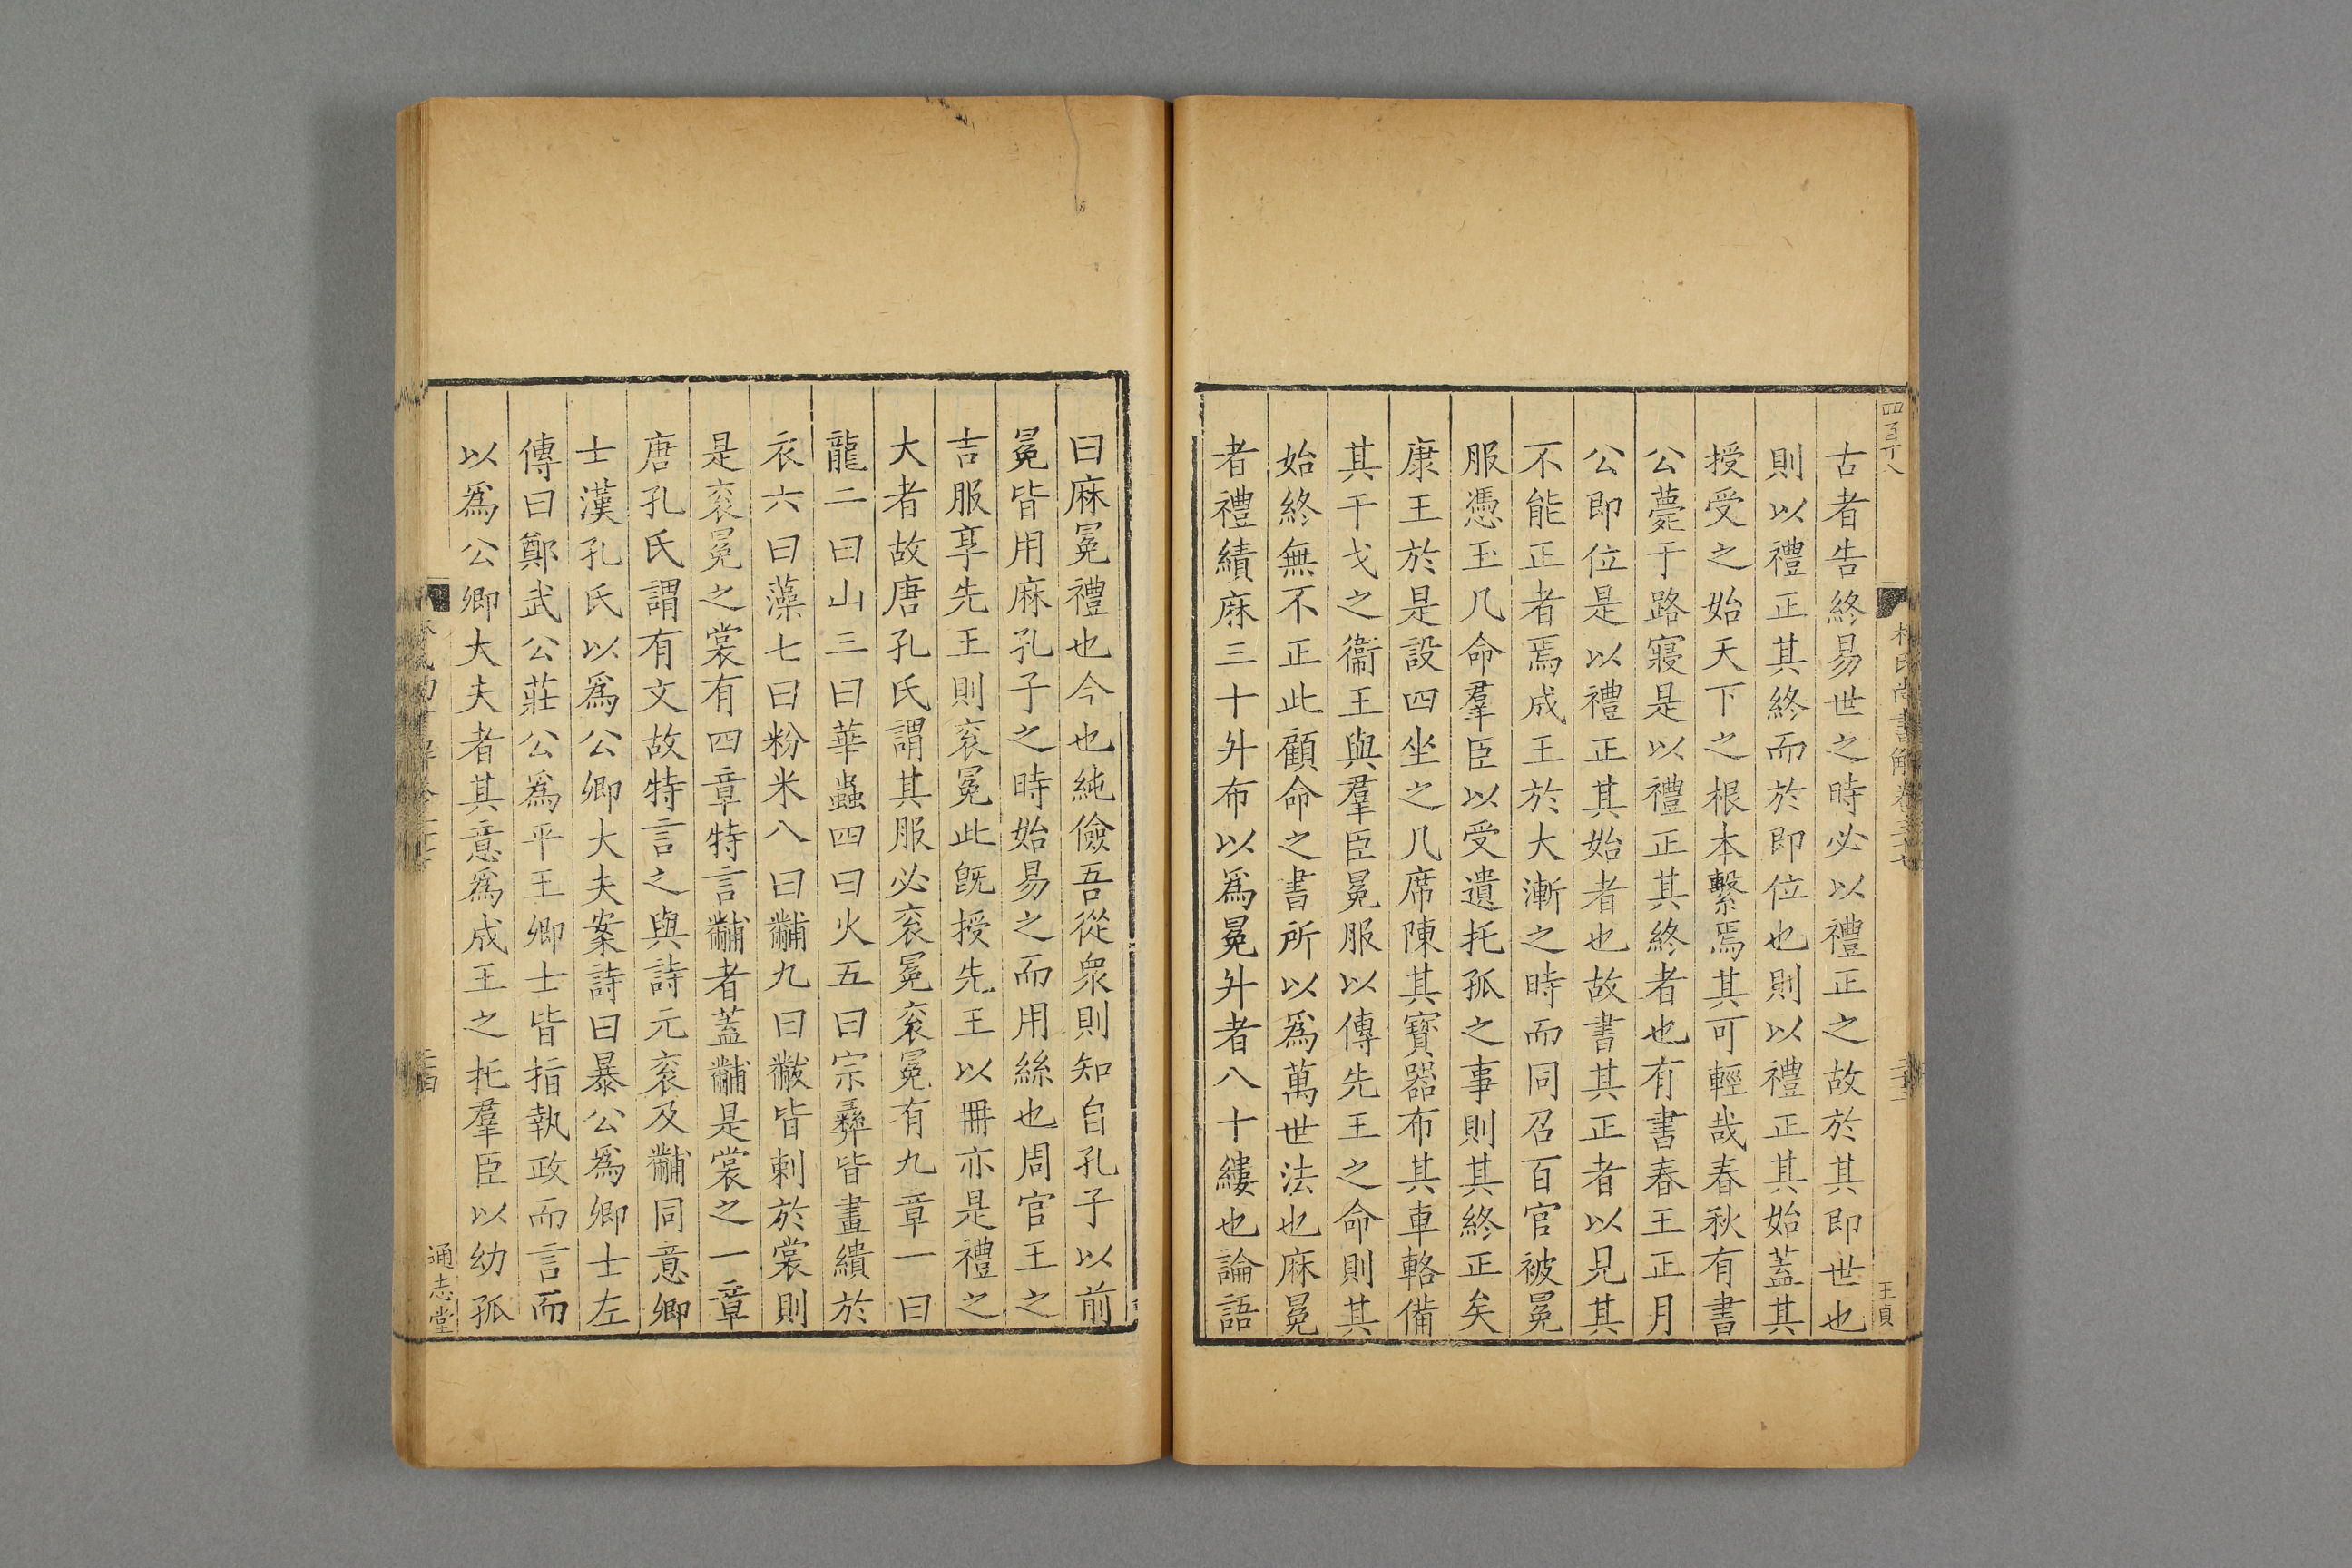 四百廿八
林氏尚書解卷三十七
王貞
古者告終易世之時必以禮正之故於其即世也
則以禮正其終而於即位也則以禮正其始蓋其
授受之始天下之根本繫焉其可輕哉春秋有書
公薨于路寢是以禮正其終者也有書春王正月
公即位是以禮正其始者也故書其正者以見其
不能正者焉成王於大漸之時而同召百官被冕
服憑玉几命羣臣以受遺托孤之事則其終正矣
康王於是設四坐之几席陳其寶器布其車輅備
其干戈之衞王與羣臣冕服以傳先王之命則其
始終無不正此顧命之書所以為萬世法也麻冕
者禮績麻三十升布以為冕升者八十縷也論語
曰麻冕禮也今也純儉吾從衆則知自孔子以前
冕皆用麻孔子之時始易之而用絲也周官王之
吉服享先王則衮冕此旣授先王以冊亦是禮之
大者故唐孔氏謂其服必衮冕衮冕有九章一曰
龍二曰山三曰華蟲四曰火五曰宗彝皆畫繢於
衣六曰藻七曰粉米八曰黼九曰黻皆刺於裳則
是衮冕之裳有四章特言黼者蓋黼是裳之一章
唐孔氏謂有文故特言之與詩元衮及黼同意卿
士漢孔氏以為公卿大夫案詩曰暴公為卿士左
傳曰鄭武公莊公為平王卿士皆指執政而言而
以為公卿大夫者其意為成王之托羣臣以幼孤
通志堂